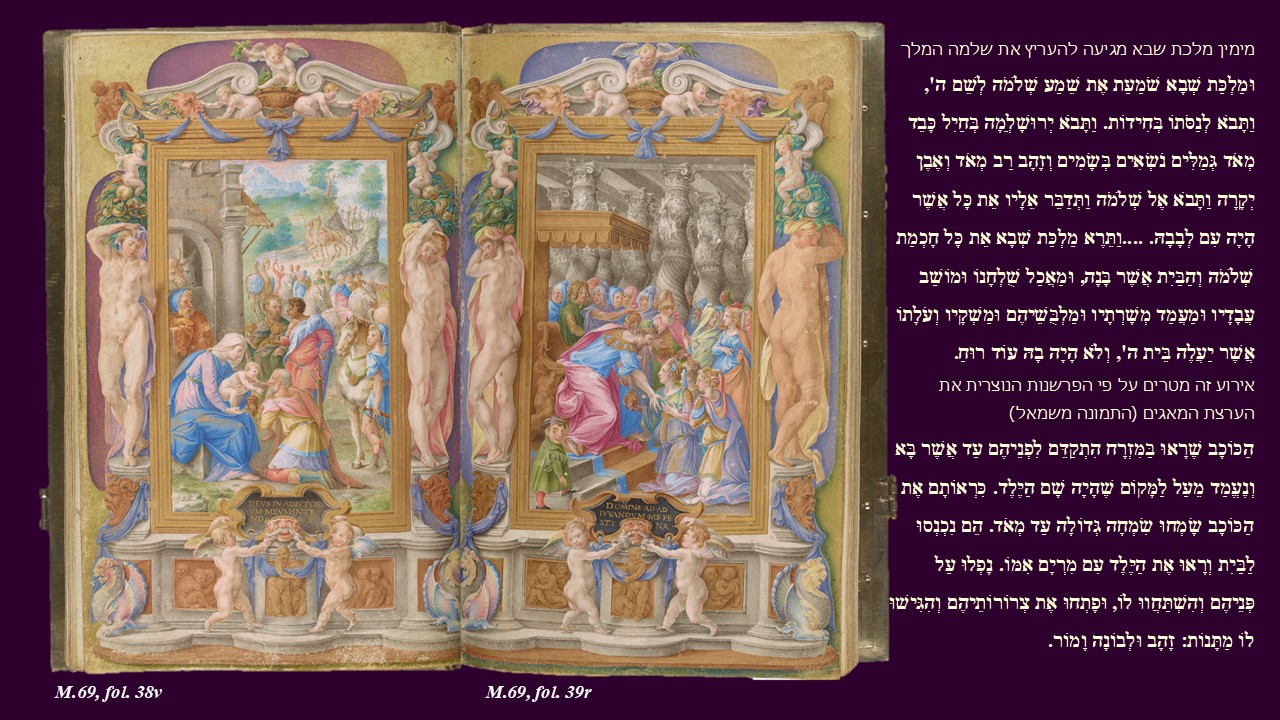 מימין מלכת שבא מגיעה להעריץ את שלמה המלך
וּמַלְכַּת שְׁבָא שֹׁמַעַת אֶת שֵׁמַע שְׁלֹמֹה לְשֵׁם ה',
וַתָּבֹא לְנַסֹּתוֹ בְּחִידוֹת. וַתָּבֹא יְרוּשָׁלְַמָה בְּחַיִל כָּבֵד
מְאֹד גְּמַלִּים נֹשְׂאִים בְּשָׂמִים וְזָהָב רַב מְאֹד וְאֶבֶן
יְקָרָה וַתָּבֹא אֶל שְׁלֹמֹה וַתְּדַבֵּר אֵלָיו אֵת כָּל אֲשֶׁר
הָיָה עִם לְבָבָהּ. ....וַתֵּרֶא מַלְכַּת שְׁבָא אֵת כָּל חָכְמַת
שְׁלֹמֹה וְהַבַּיִת אֲשֶׁר בָּנָה, וּמַאֲכַל שֻׁלְחָנוֹ וּמוֹשַׁב
עֲבָדָיו וּמַעֲמַד מְשָׁרְתָיו וּמַלְבֻּשֵׁיהֶם וּמַשְׁקָיו וְעֹלָתוֹ
אֲשֶׁר יַעֲלֶה בֵּית ה', וְלֹא הָיָה בָהּ עוֹד רוּחַ.
אירוע זה מטרים על פי הפרשנות הנוצרית את
הערצת המאגים (התמונה משמאל)
הַכּוֹכָב שֶׁרָאוּ בַּמִּזְרָח הִתְקַדֵּם לִפְנֵיהֶם עַד אֲשֶׁר בָּא
וְנֶעֱמַד מֵעַל לַמָּקוֹם שֶׁהָיָה שָׁם הַיֶּלֶד. כִּרְאוֹתָם אֶת
הַכּוֹכָב שָׂמְחוּ שִׂמְחָה גְּדוֹלָה עַד מְאֹד. הֵם נִכְנְסוּ
לַבַּיִת וְרָאוּ אֶת הַיֶּלֶד עִם מִרְיָם אִמּוֹ. נָפְלוּ עַל
פְּנֵיהֶם וְהִשְׁתַּחֲווּ לוֹ, וּפָתְחוּ אֶת צְרוֹרוֹתֵיהֶם וְהִגִּישׁוּ
לוֹ מַתָּנוֹת: זָהָב וּלְבוֹנָה וָמוֹר.
DEVS IN ADIVTOR
VM MEVM INTE
ND
DOMINE AD AD
IVVANDVM ME FE
STI NA
M.69, fol. 38v
M.69, fol. 39r